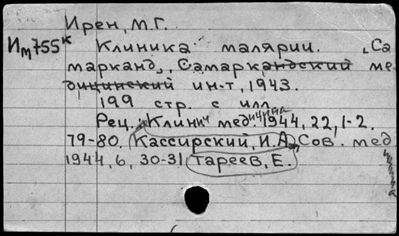 Ирен, М.Г.
Им755к Клиника малярии. "Са
марканд", Самаркандский ме
дицинский ин-т, 1943.
199 стр. с илл.
Рец.: "Клинич медицина" 1944, 22, 1-2.
79-80. Кассирский, И.А., "Сов. мед
1944, 6, 30-31 Тареев, Е.